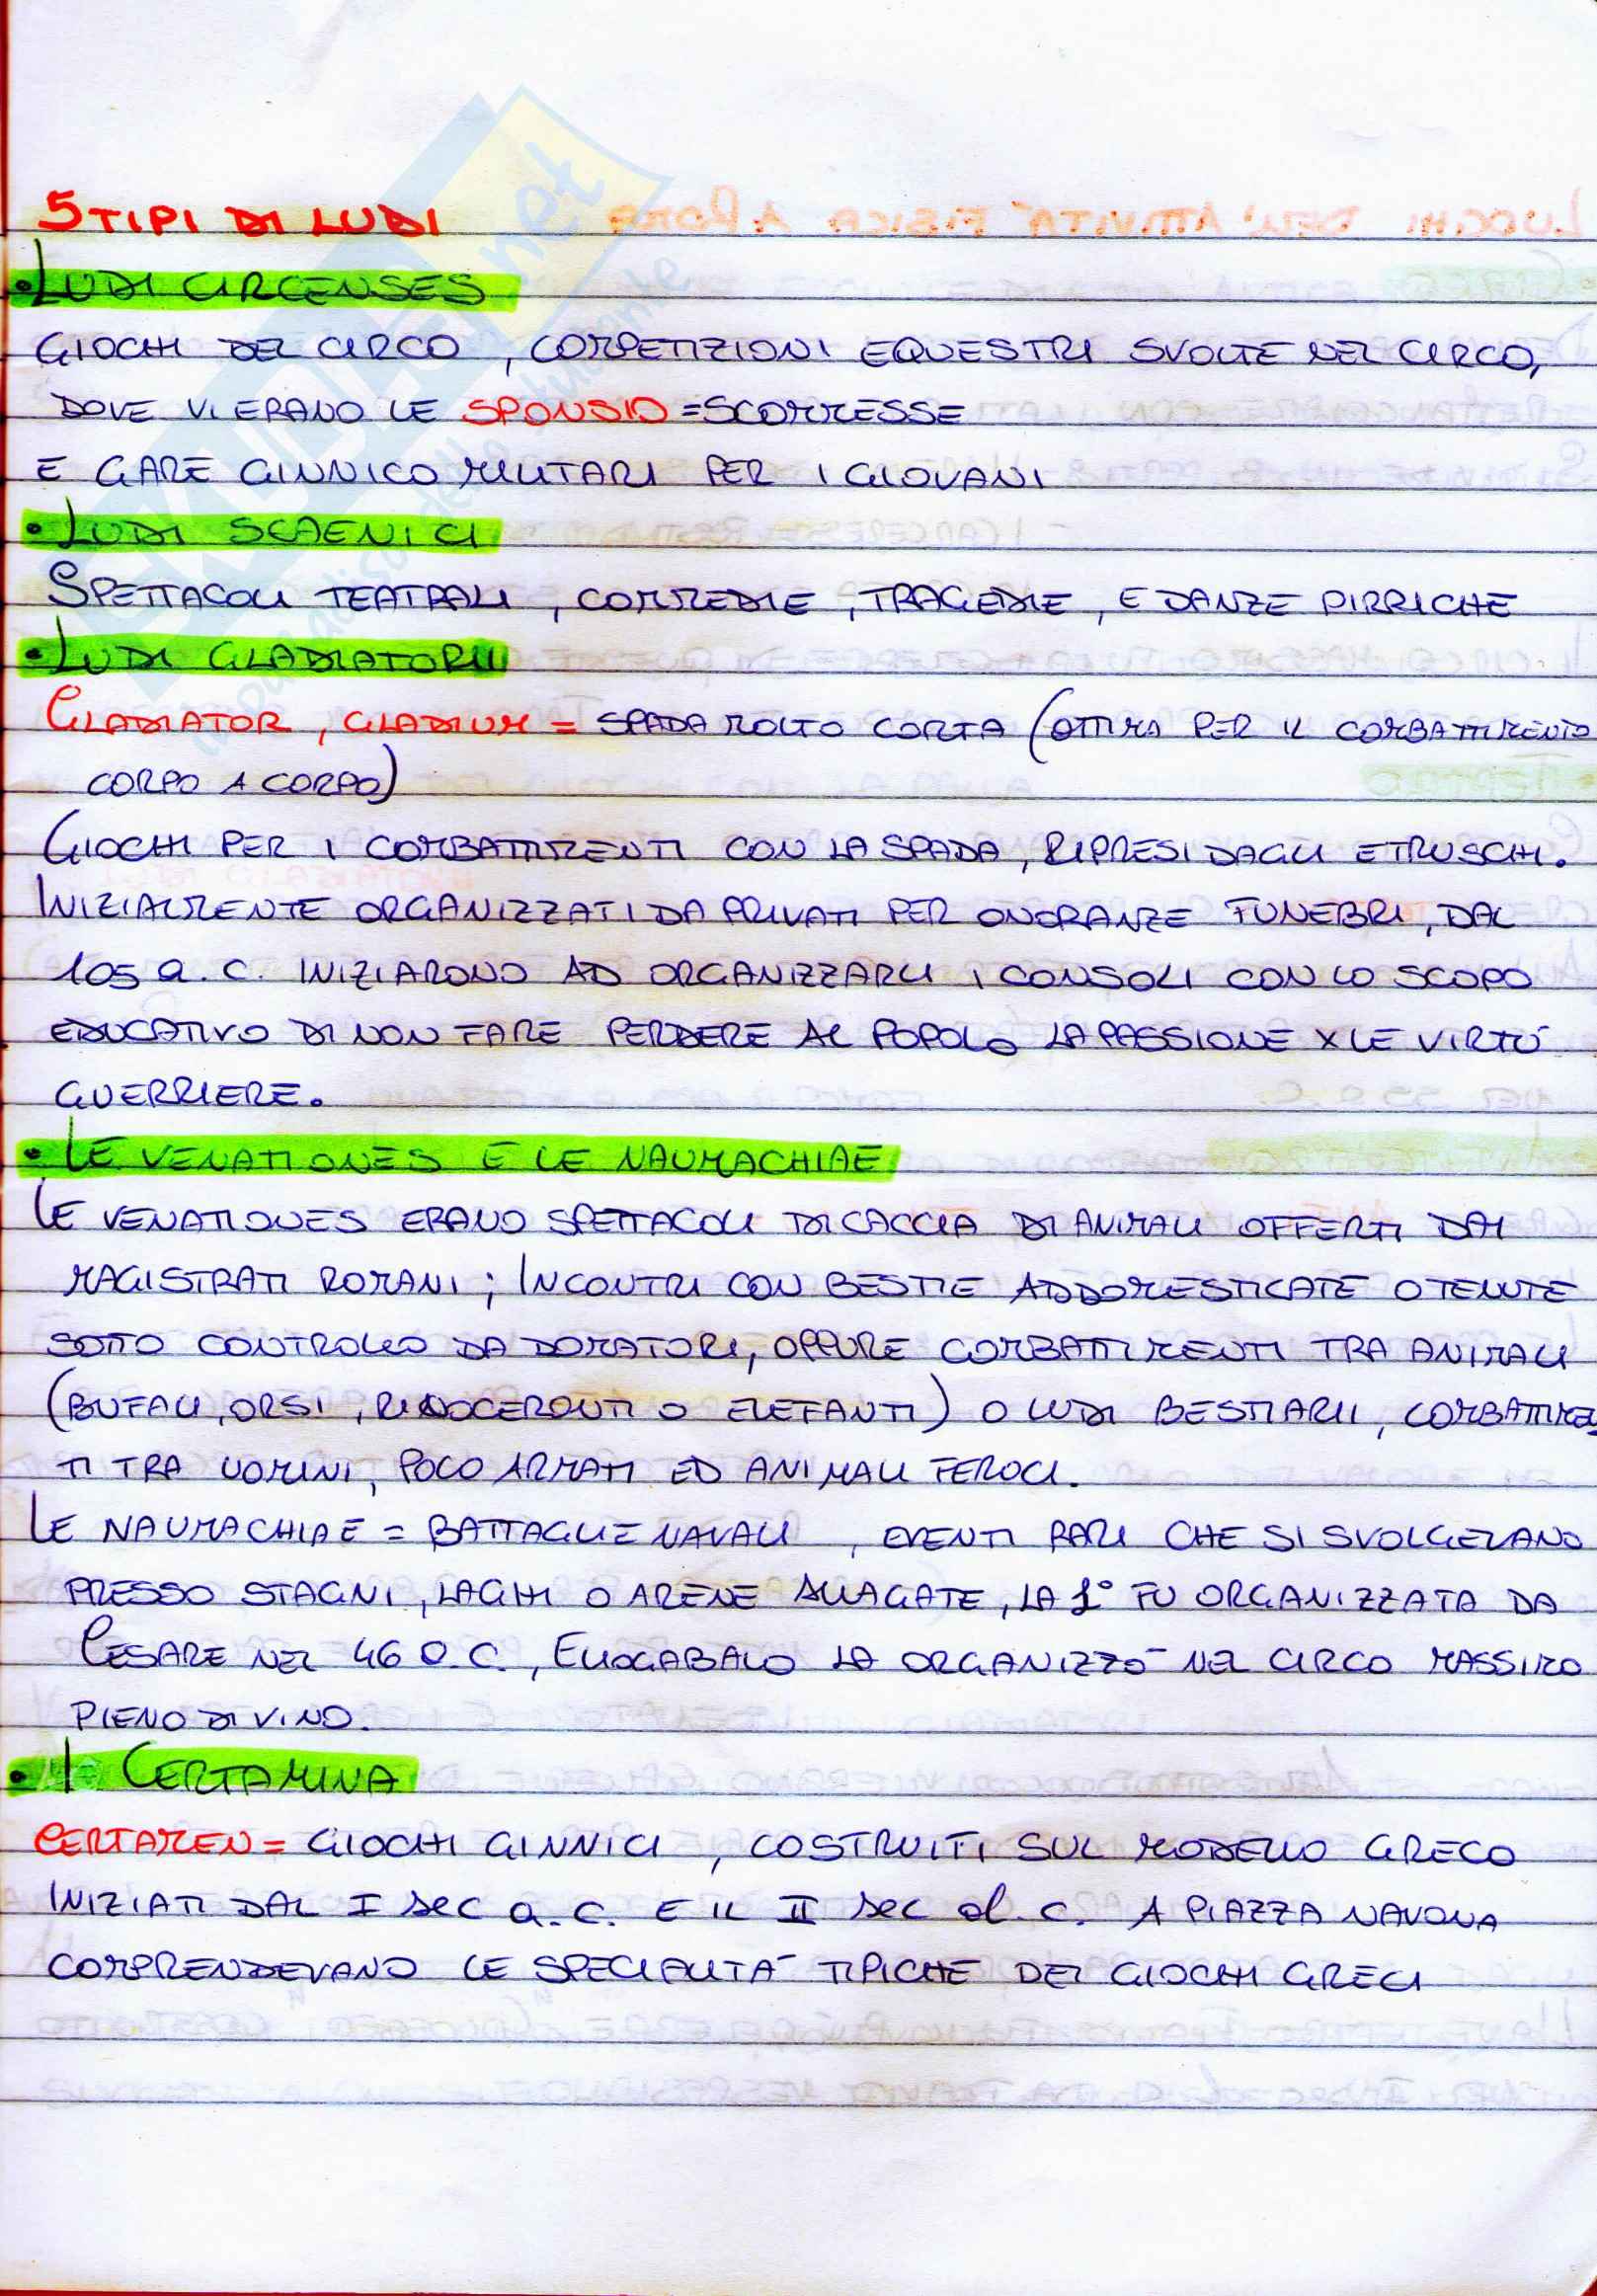 5 TIPI DI LUDI
• LUDI CIRCENSES
GIOCHI DEL CIRCO, COMPETIZIONI EQUESTRI SVOLTE NEL CIRCO,
DOVE VI ERANO LE SPONSIO = SCOMMESSE
E GARE GINNICO MILITARI PER I GIOVANI
• LUDI SCAENICI
SPETTACOLI TEATRALI, COMMEDIE, TRAGEDIE, E DANZE PIRRICHE
• LUDI GLADIATORII
GLADIATOR, GLADIUM = SPADA MOLTO CORTA (OTTIMA PER IL COMBATTIMENTO
CORPO A CORPO)
GIOCHI PER I COMBATTIMENTI CON LA SPADA, RIPRESI DAGLI ETRUSCHI.
INIZIALMENTE ORGANIZZATI DA PRIVATI PER ONORANZE FUNEBRI, DAL
105 a.C. INIZIARONO AD ORGANIZZARLI I CONSOLI CON LO SCOPO
EDUCATIVO DI NON FARE PERDERE AL POPOLO LA PASSIONE X LE VIRTÙ
GUERRIERE.
• LE VENATIONES E LE NAUMACHIAE
LE VENATIONES ERANO SPETTACOLI DI CACCIA DI ANIMALI OFFERTI DAI
MAGISTRATI ROMANI; INCONTRI CON BESTIE ADDOMESTICATE O TENUTE
SOTTO CONTROLLO DA DOMATORI, OPPURE COMBATTIMENTI TRA ANIMALI
(BUFALI, ORSI, RINOCERONTI O ELEFANTI) O LUDI BESTIARII, COMBATTIMEN
TI TRA UOMINI, POCO ARMATI ED ANIMALI FEROCI.
LE NAUMACHIAE = BATTAGLIE NAVALI, EVENTI RARI CHE SI SVOLGEVANO
PRESSO STAGNI, LAGHI O ARENE ALLAGATE, LA 1° FU ORGANIZZATA DA
CESARE NEL 46 a.C., ELIOGABALO LA ORGANIZZÒ NEL CIRCO MASSIMO
PIENO DI VINO.
• I CERTAMINA
CERTAMEN = GIOCHI GINNICI, COSTRUITI SUL MODELLO GRECO
INIZIATI DAL I sec a.C. E IL II sec d.C. A PIAZZA NAVONA
COMPRENDEVANO LE SPECIALITÀ TIPICHE DEI GIOCHI GRECI